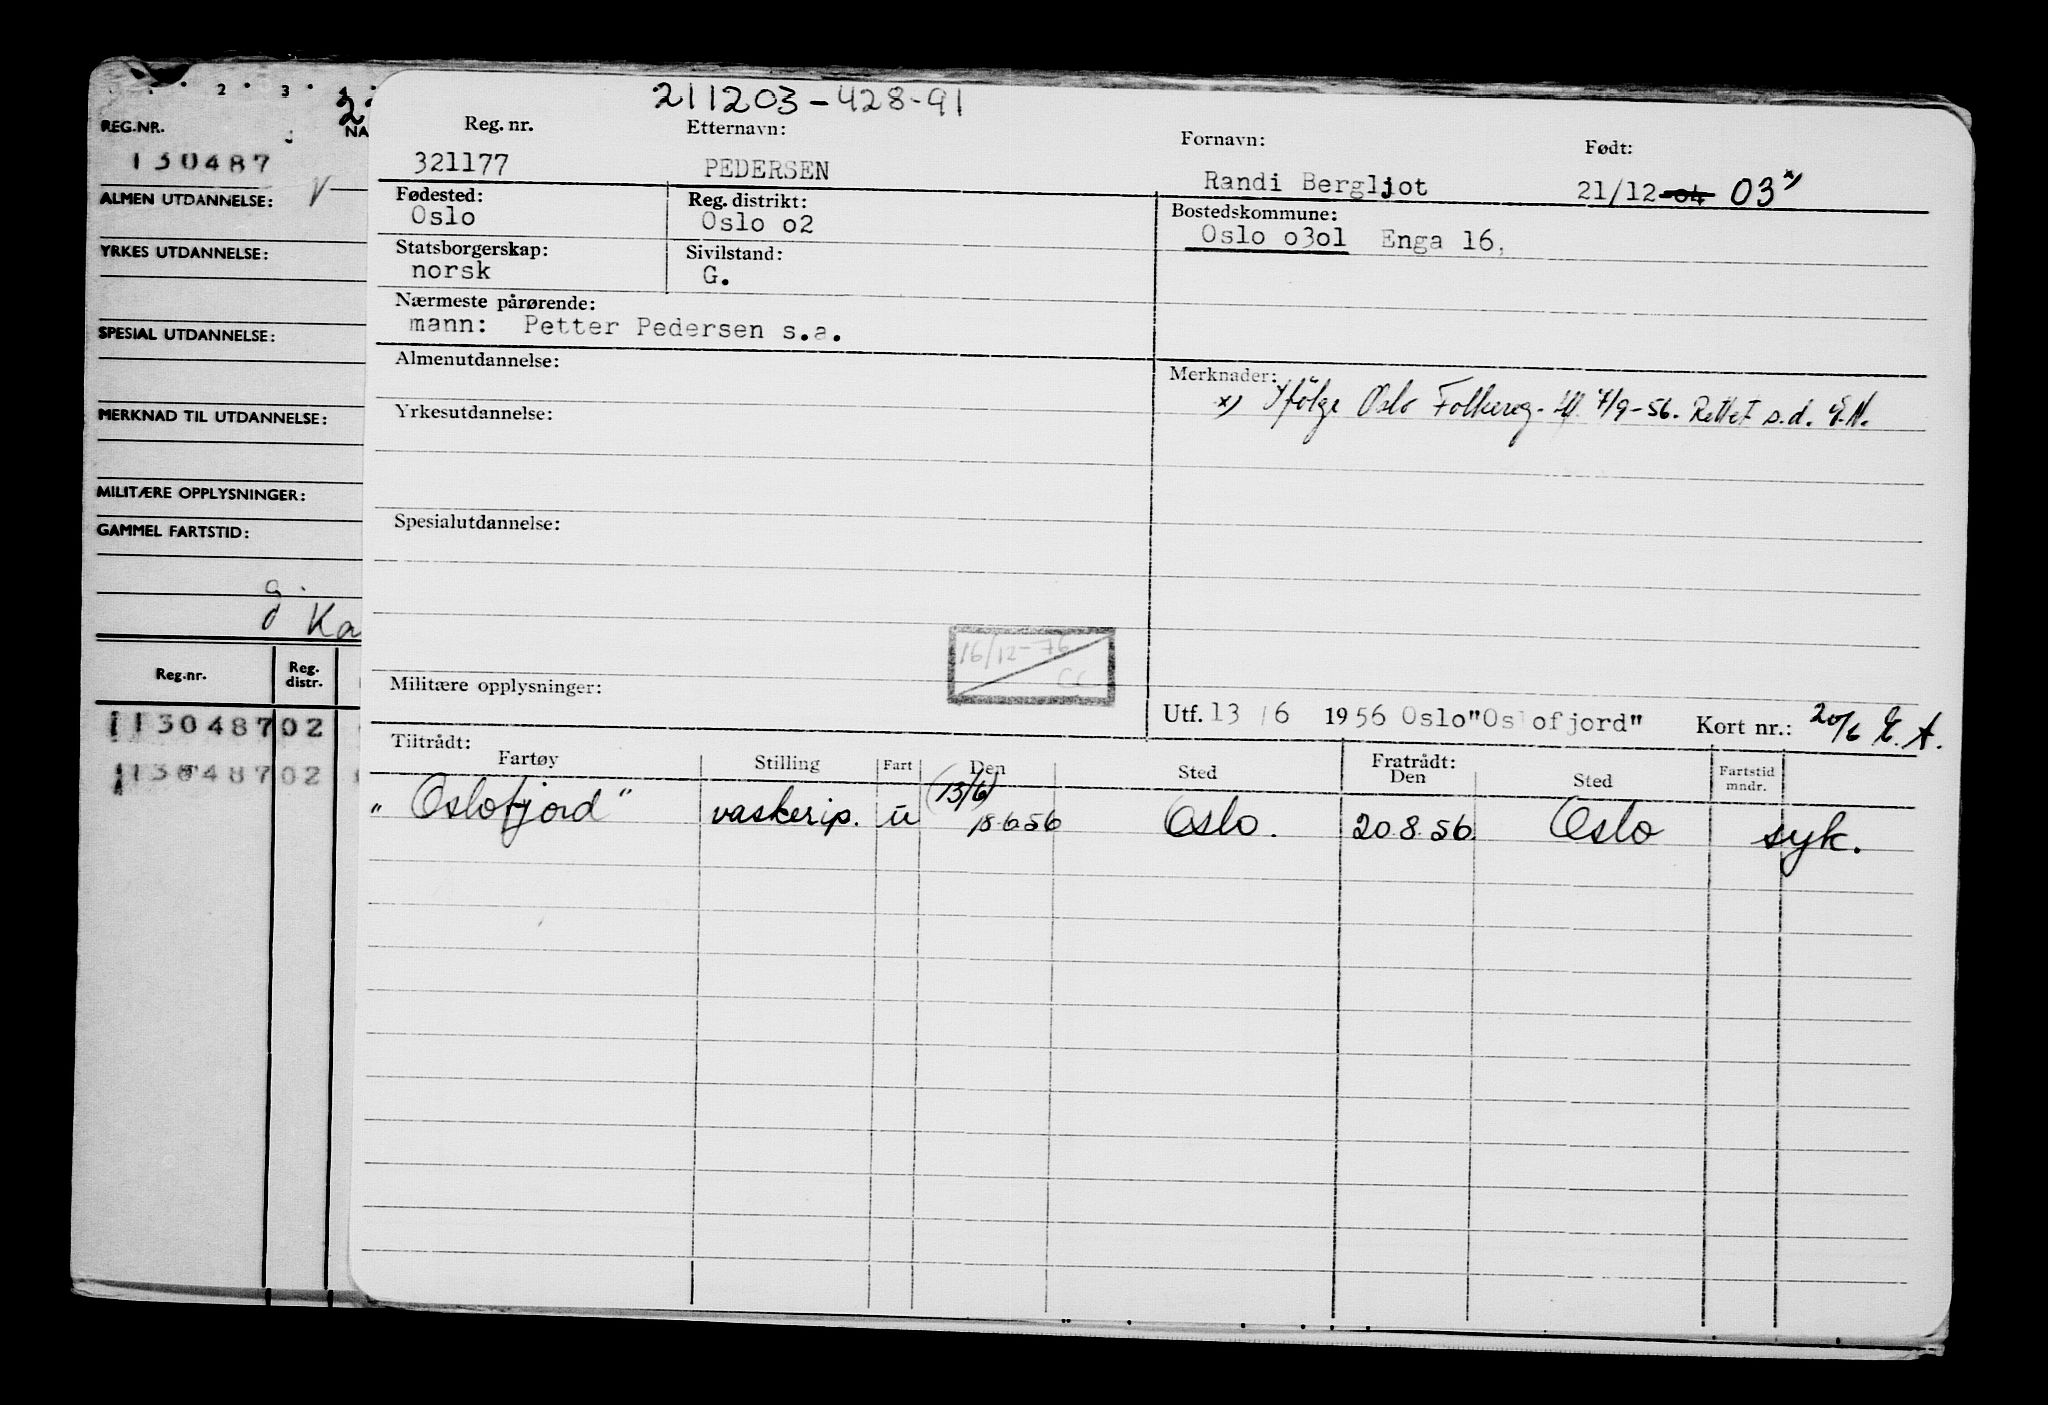 211203-428-91
Reg. nr. Etternavn: Fornavn: Født:
321177 PEDERSEN Randi Bergljot 21/12 04 03 x)
Fødested: Reg. distrikt: Bostedskommune:
Oslo Oslo o2 Oslo o3o1 Enga 16,
Statsborgerskap: Sivilstand:
norsk G.
Nærmeste pårørende:
mann: Petter Pedersen s.a.
Almenutdannelse: Merknader:
x) Ifölge Oslo Folkereg. 7/9-56. Rettet s.d.
Yrkesutdannelse:
Spesialutdannelse:
16/12-76
CC
Militære opplysninger:
Utf. 13/6 1956 Oslo "Oslofjord" Kort nr.: 20/6 E. A.
Tiltrådt: Fratrådt:
Fartøy Stilling Fart Den Sted Den Sted Fartstid mndr.
(13/6)
"Oslofjord" vaskerip. u 18.6.56 Oslo. 20.8.56. Oslo syk.
2 3 4
2
REG.NR. NA
130487
ALMEN UTDANNELSE: V
YRKES UTDANNELSE:
SPESIAL UTDANNELSE:
MERKNAD TIL UTDANNELSE:
MILITÆRE OPPLYSNINGER:
GAMMEL FARTSTID:
g.
Ka
Reg.nr. Reg. distr.
113048702
113048702